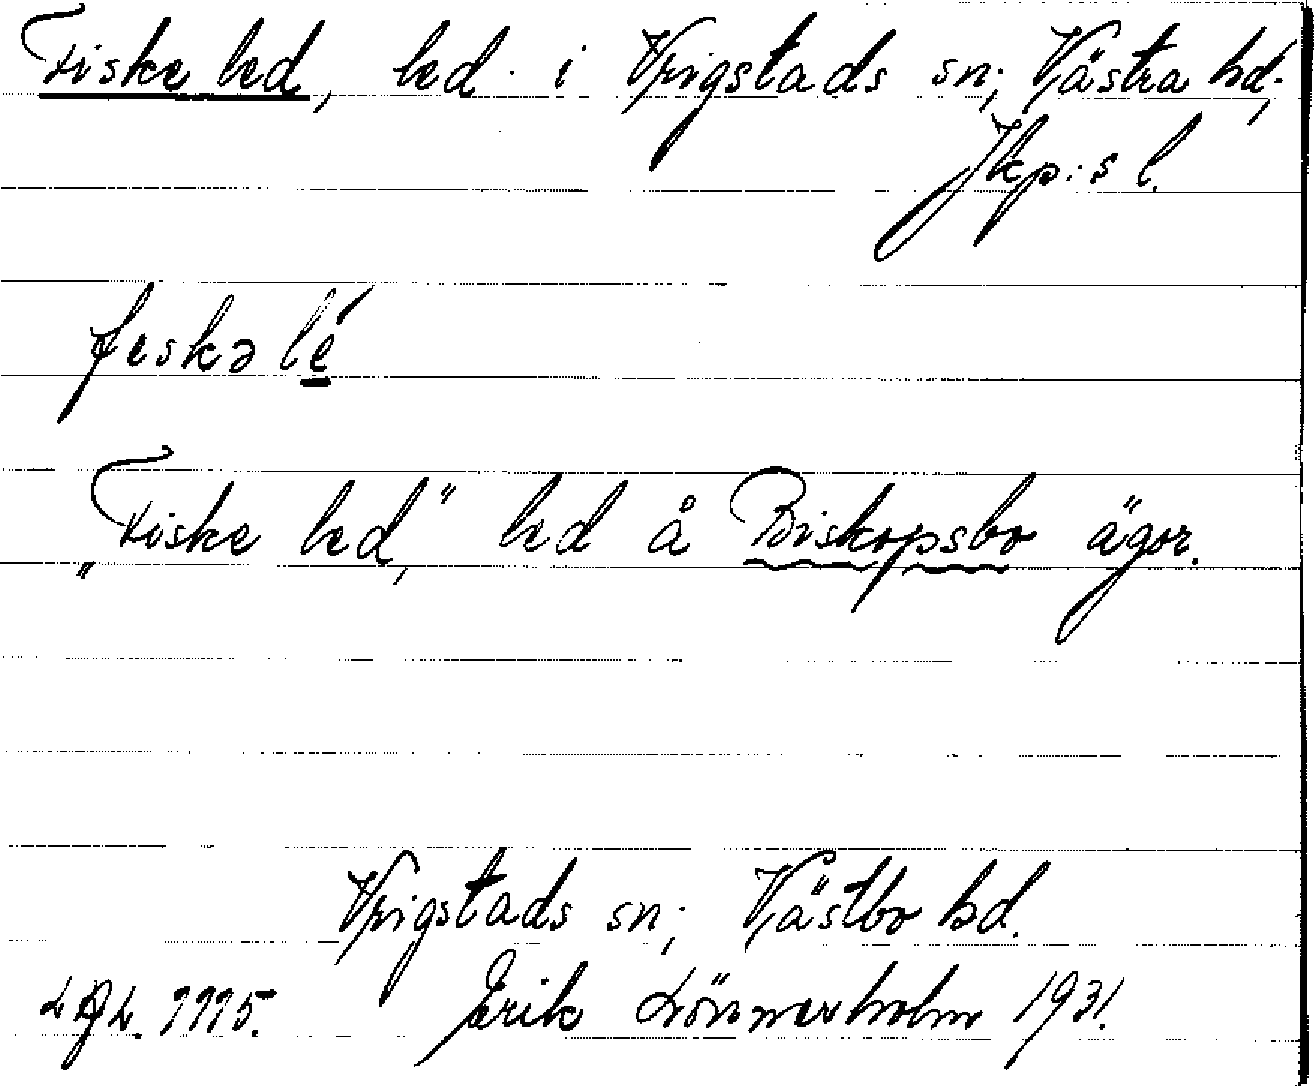 Fiske led, led i Vrigstads sn; Västra hd;
Jkp:s l.
feskə lé
„Fiske led," led å Biskopsbo ägor.
Vrigstads sn; Västbo hd.
Erik Lönnerholm 1931.